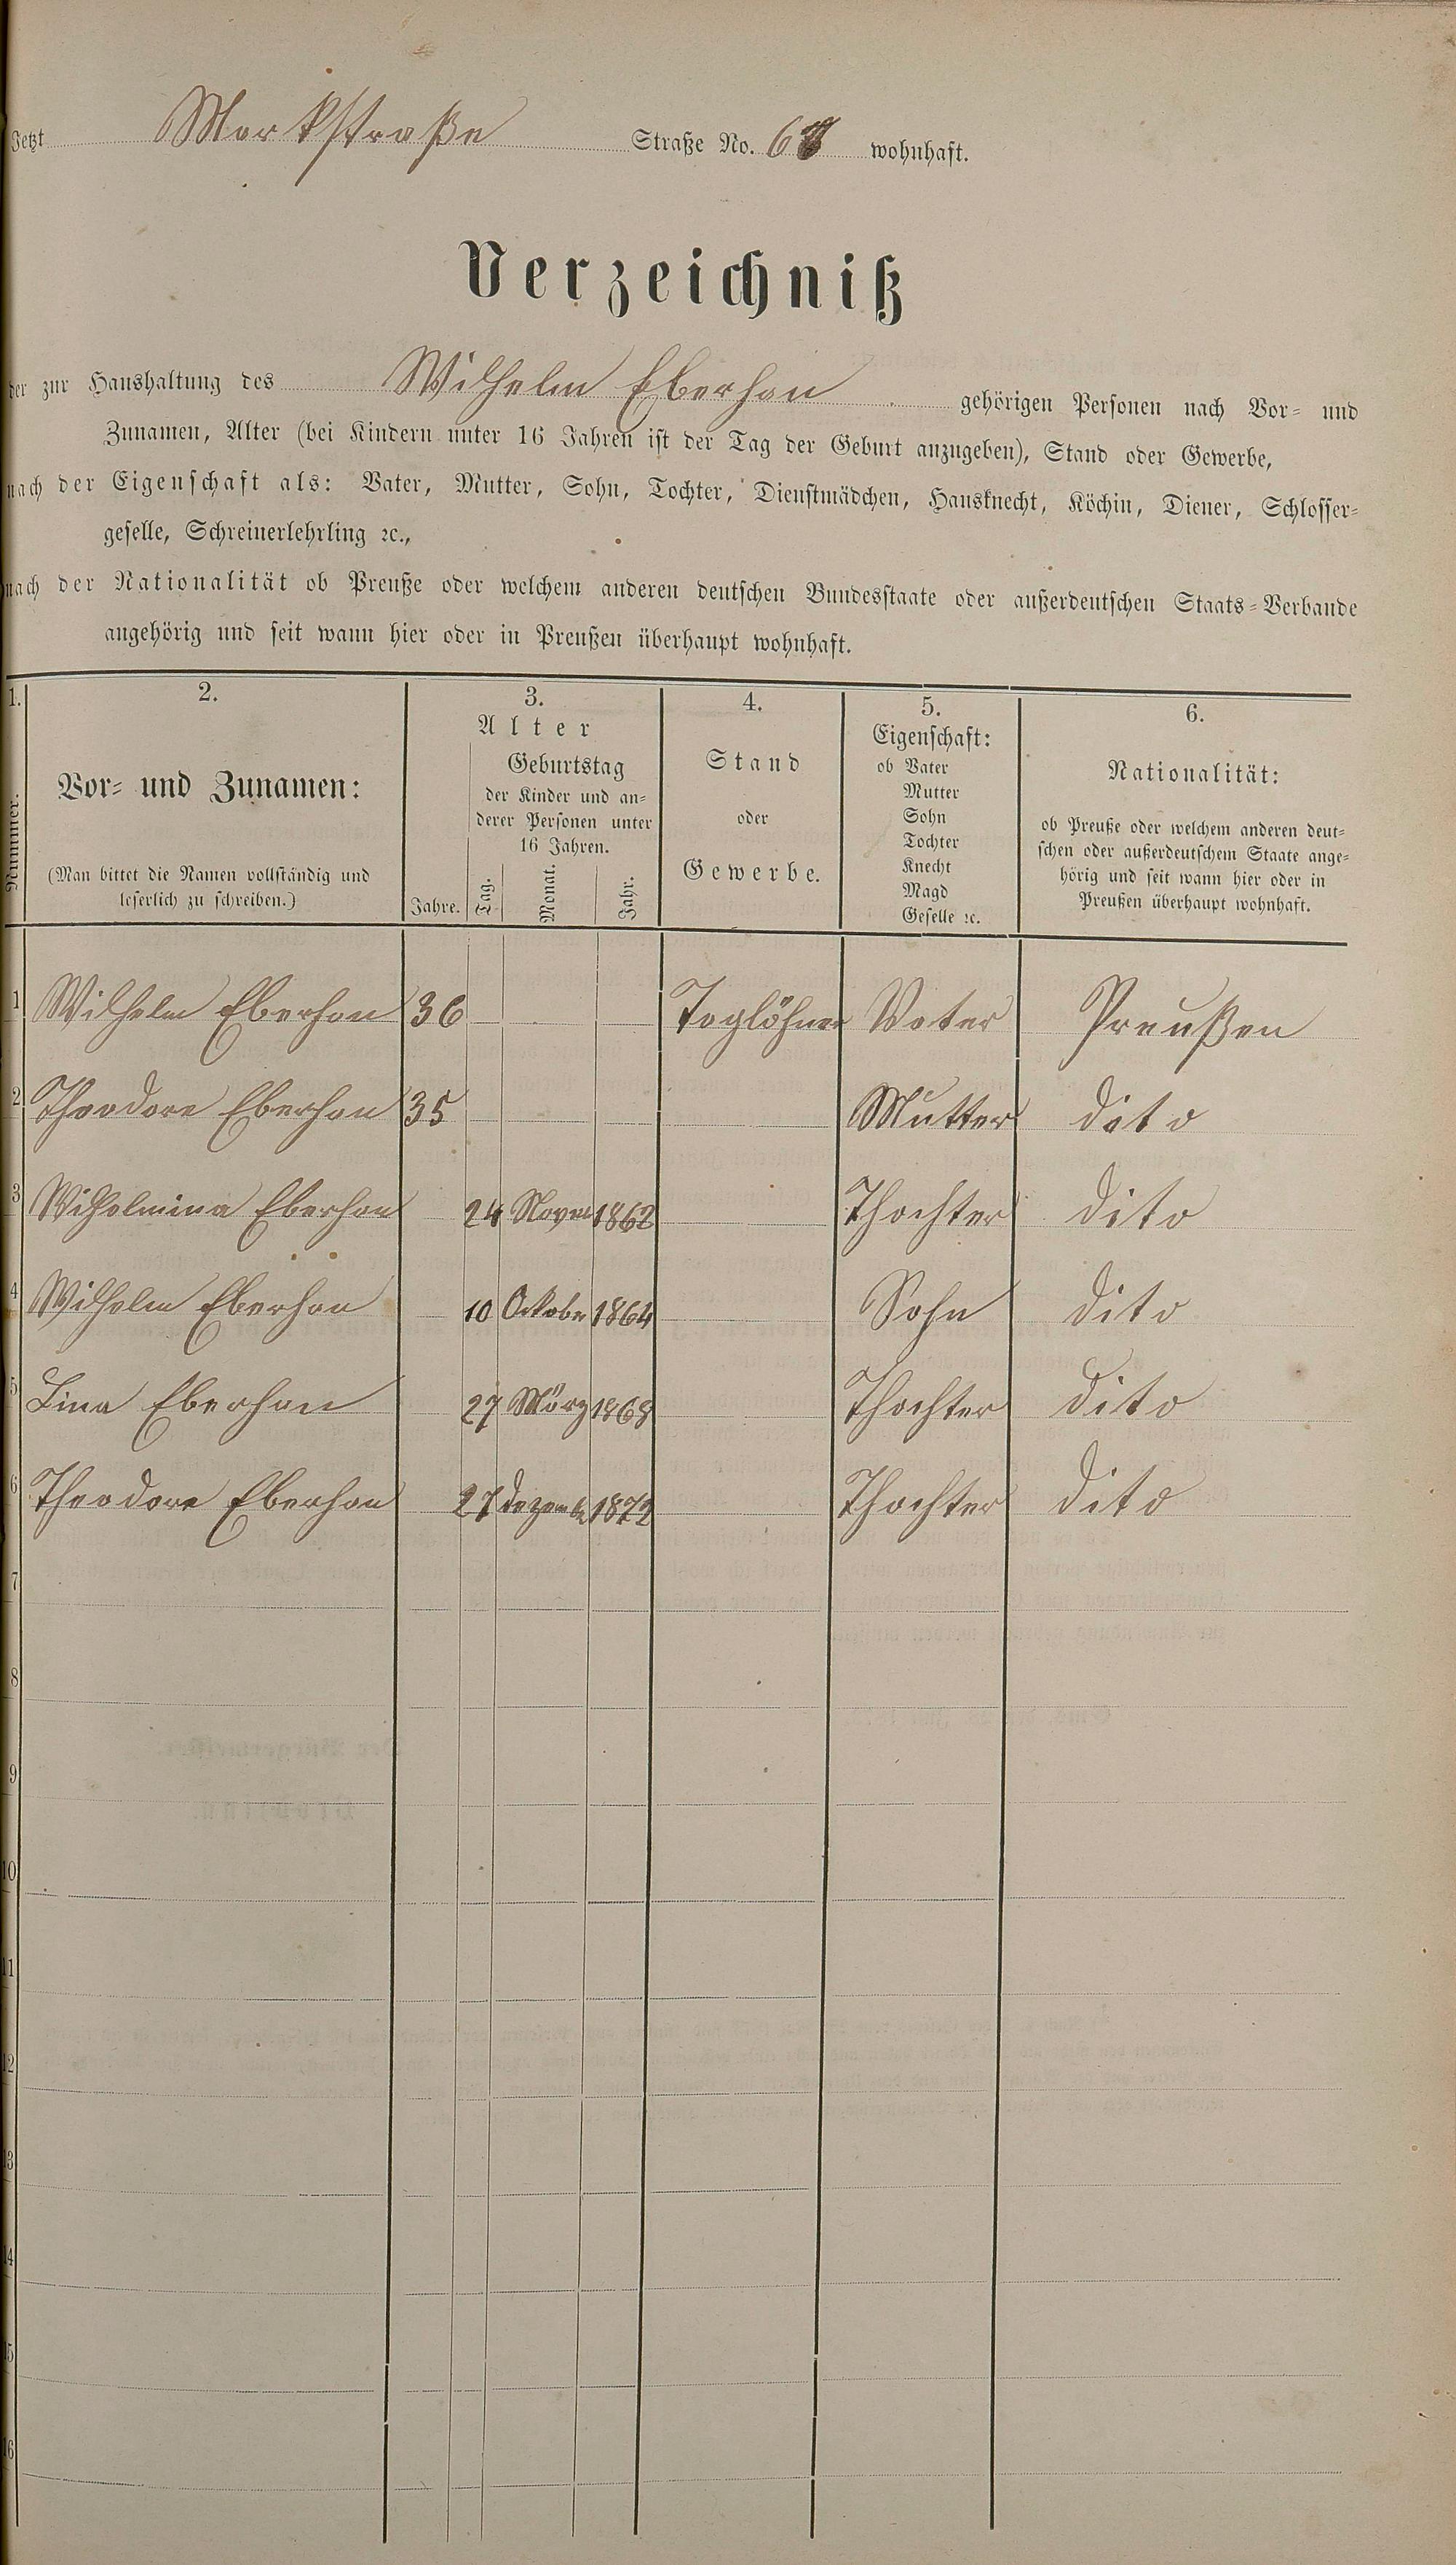 Jetzt Markstraße Straße No. 67 wohnhaft.
Verzeichniß
der zur Haushaltung des Wilhelm Eberhan gehörigen Personen nach Vor- und
Zunamen, Alter (bei Kindern unter 16 Jahren ist der Tag der Geburt anzugeben), Stand oder Gewerbe,
nach der Eigenschaft als: Vater, Mutter, Sohn, Tochter, Dienstmädchen, Hausknecht, Köchin, Diener, Schlosser-
geselle, Schreinerlehrling ꝛc.,
nach der Nationalität ob Preuße oder welchem anderen deutschen Bundesstaate oder außerdeutschen Staats-Verbande
angehörig und seit wann hier oder in Preußen überhaupt wohnhaft.
1.
Nummer.
2.
Vor- und Zunamen:
(Man bittet die Namen vollständig und
leserlich zu schreiben.)
3.
Alter
Jahre.
Geburtstag
der Kinder und an-
derer Personen unter
16 Jahren.
Tag. Monat. Jahr.
4.
Stand
oder
Gewerbe.
5.
Eigenschaft:
ob Vater
Mutter
Sohn
Tochter
Knecht
Magd
Geselle ꝛc.
6.
Nationalität:
ob Preuße oder welchem anderen deut-
schen oder außerdeutschem Staate ange-
hörig und seit wann hier oder in
Preußen überhaupt wohnhaft.
1 Wilhelm Eberhan 36 Taglöhner Vater Preußen
2 Theodore Eberhan 35 Mutter dito
3 Wilhelmina Eberhan 24 Novem 1862 Thochter dito
4 Wilhelm Eberhan 10 Octobe 1864 Sohn dito
5 Lina Eberhan 27 März 1868 Thochter dito
6 Theodore Eberhan 27 Dezembe 1872 Thochter dito
7
8
9
10
11
12
13
14
15
16